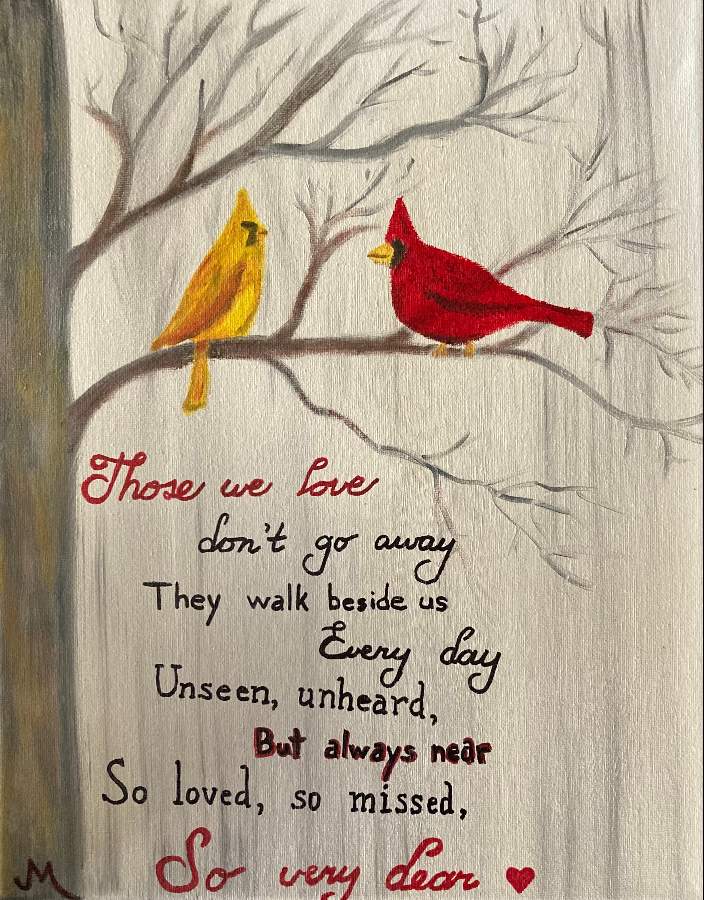 Those we love
don't go away
They walk beside us
Every day
Unseen, unheard,
But always near
So loved, so missed,
So very dear ♥
M